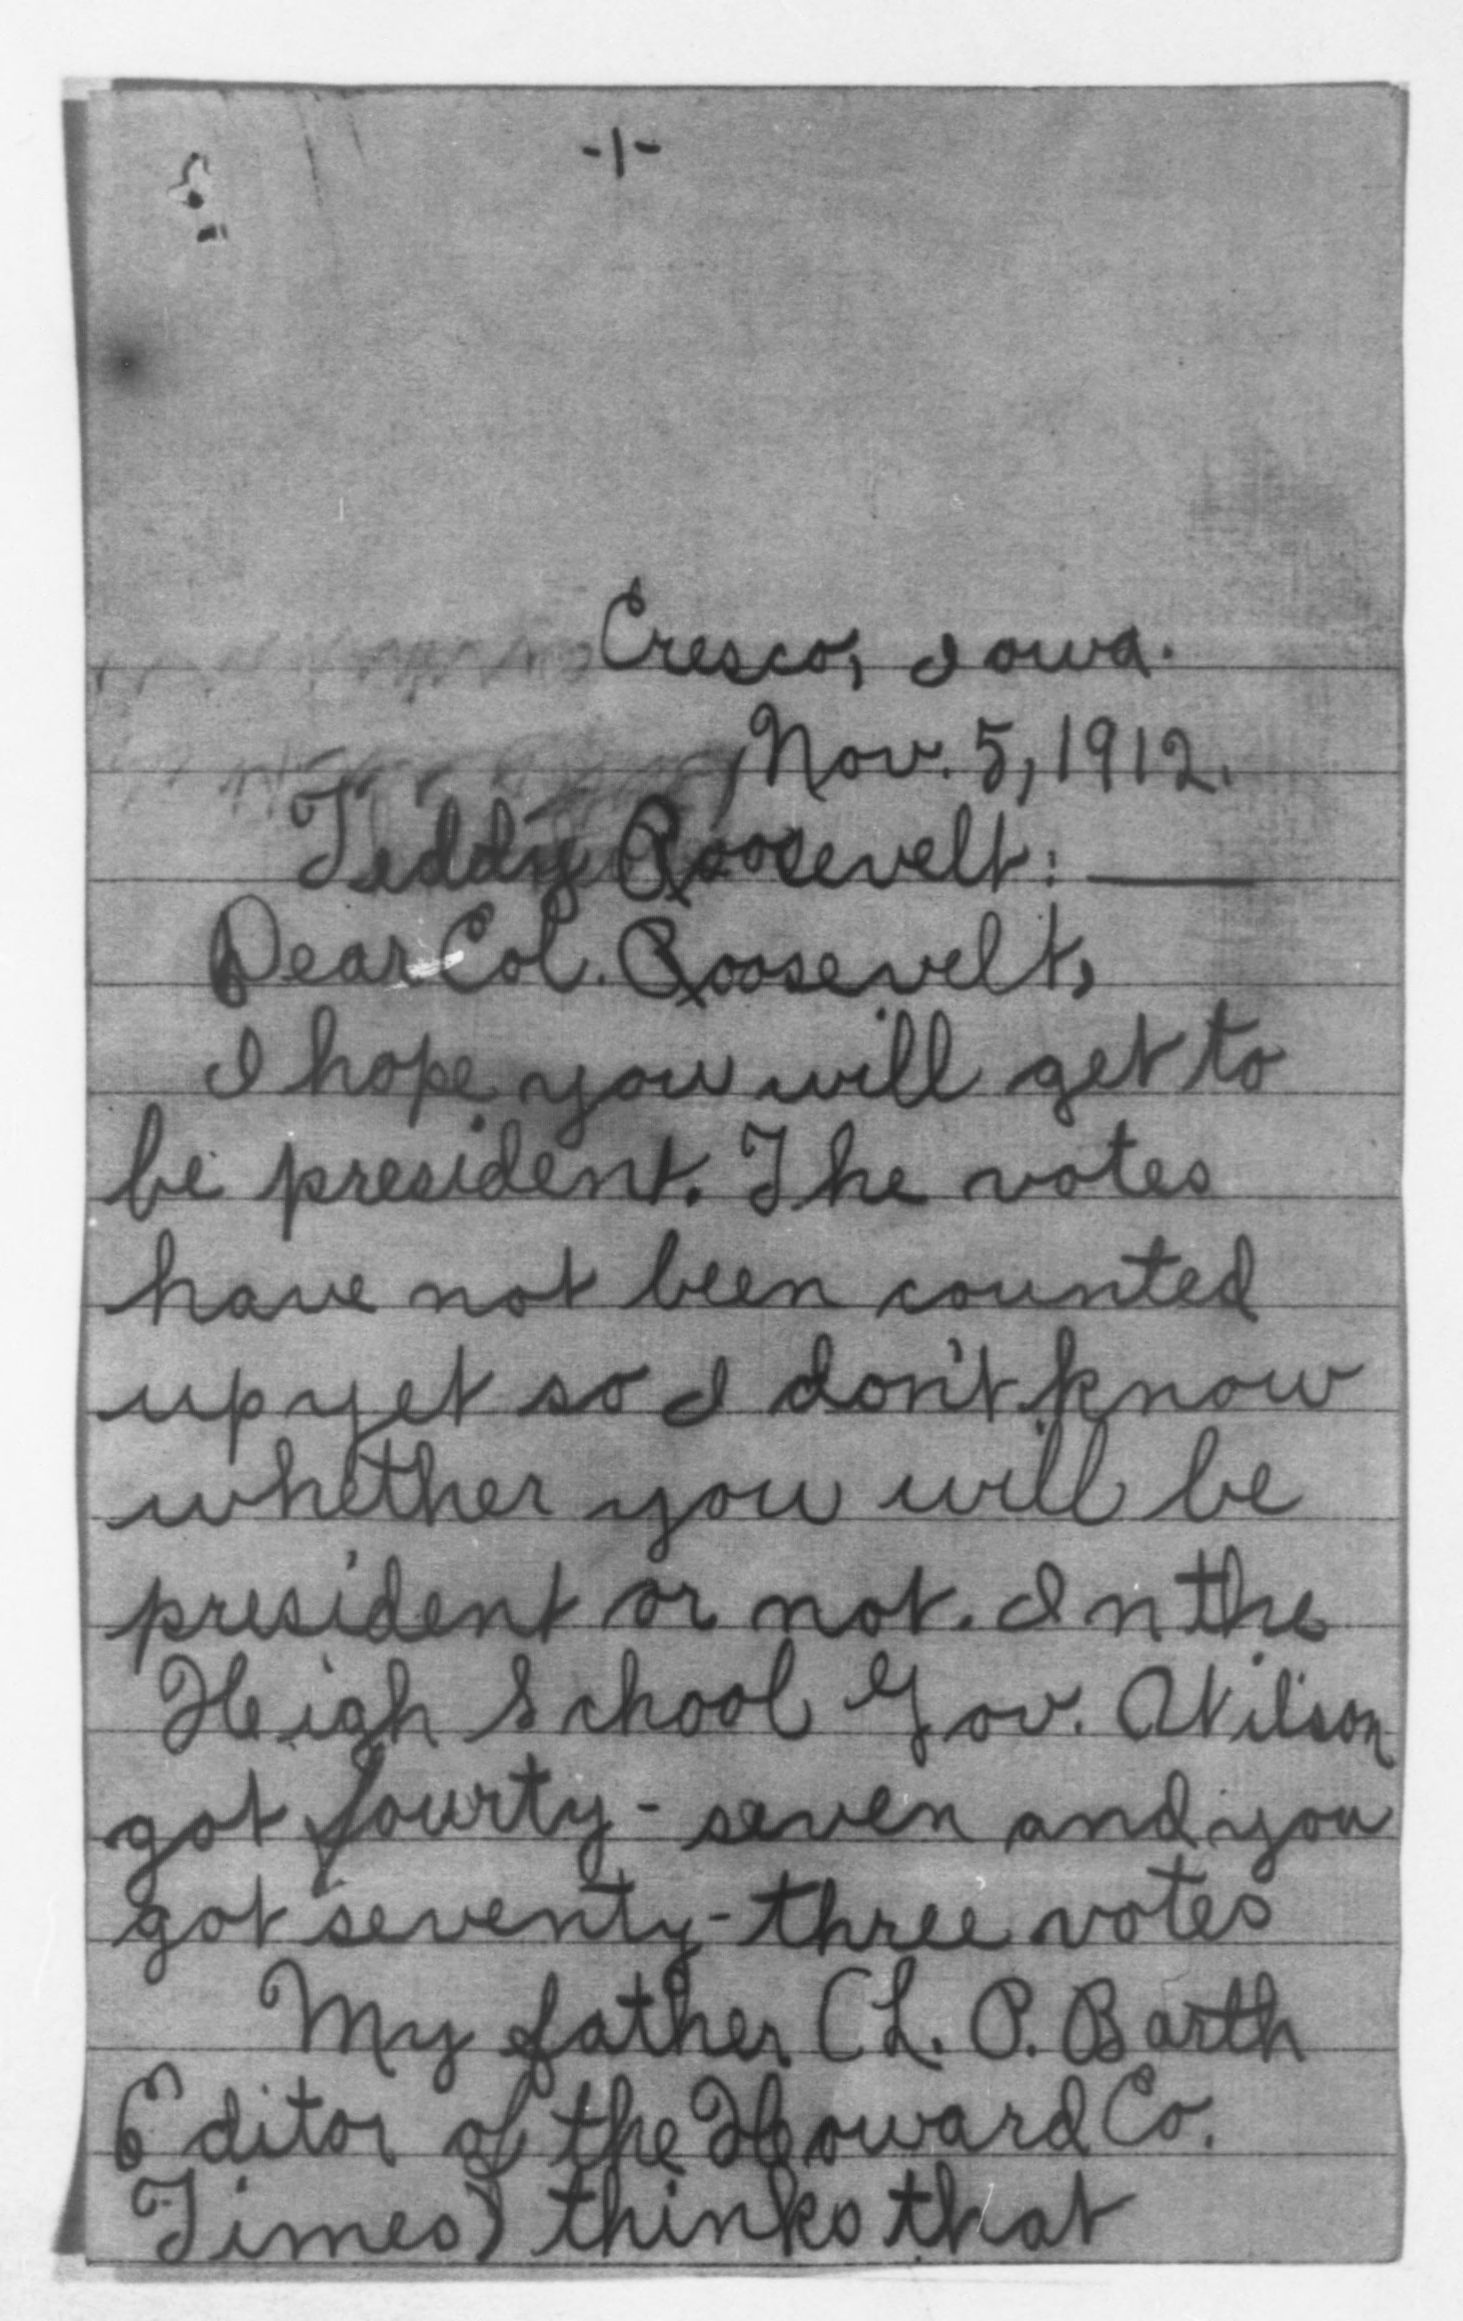 -1-
Cresco, Iowa.
Nov. 5, 1912.
Teddy Roosevelt: —
Dear Col. Roosevelt,
I hope you will get to
be president. The votes
have not been counted
up yet so I don't know
whether you will be
president or not. In the
Heigh School Gov. Wilson
got fourty-seven and you
got seventy-three votes
My father (L. P. Barth
Editor of the Howard Co.
Times) thinks that